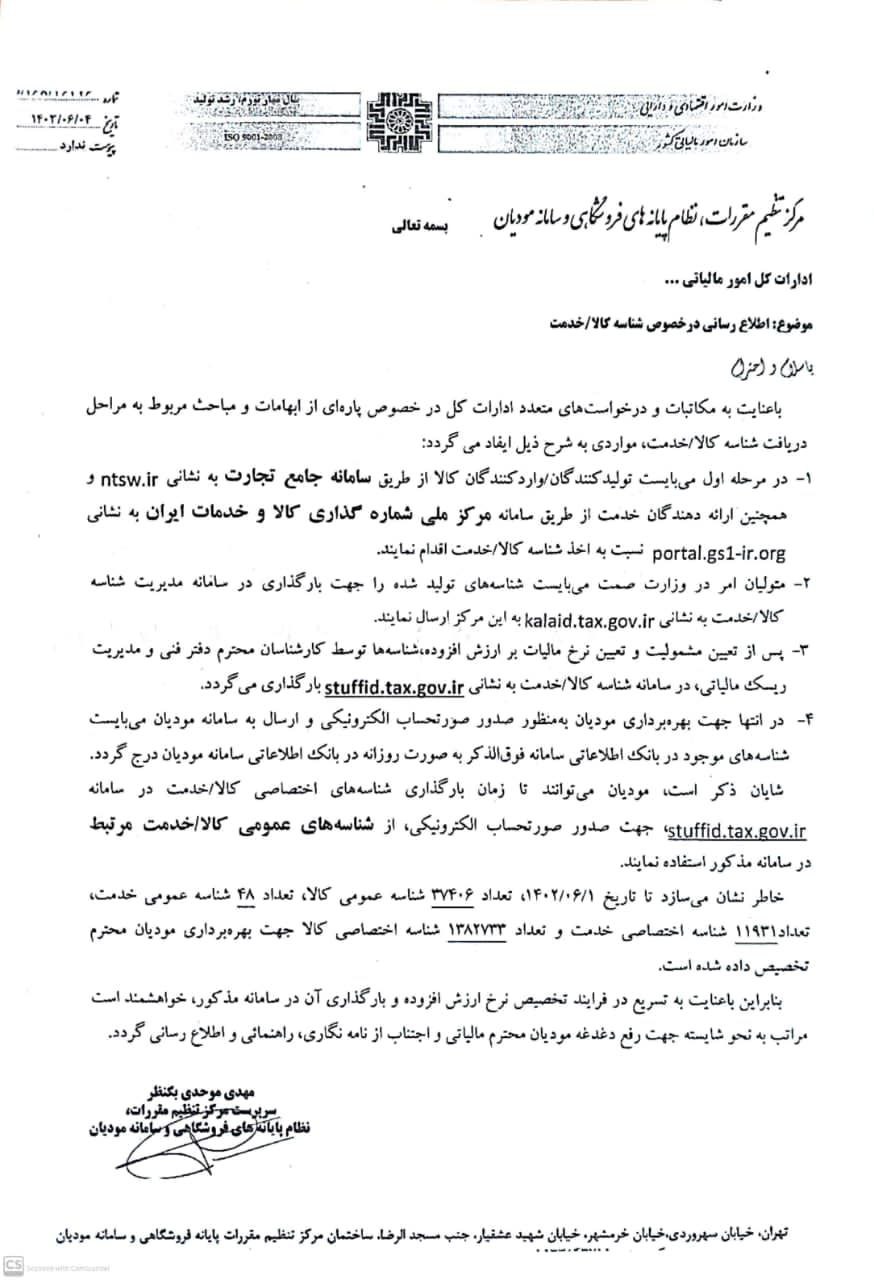 وزارت امور اقتصادی و دارایی
سازمان امور مالیاتی کشور
سال مهار تورم، رشد تولید
ISO 9001-2008
شماره
تاریخ ۱۴۰۲/۰۶/۰۴
پیوست ندارد
مرکز تنظیم مقررات، نظام پایانه های فروشگاهی و سامانه مودیان
بسمه تعالی
ادارات کل امور مالیاتی ...
موضوع: اطلاع رسانی درخصوص شناسه کالا/خدمت
با سلام و احترام
باعنایت به مکاتبات و درخواست‌های متعدد ادارات کل در خصوص پاره‌ای از ابهامات و مباحث مربوط به مراحل
دریافت شناسه کالا/خدمت، مواردی به شرح ذیل ایفاد می گردد:
۱- در مرحله اول می‌بایست تولیدکنندگان/واردکنندگان کالا از طریق سامانه جامع تجارت به نشانی ntsw.ir و
همچنین ارائه دهندگان خدمت از طریق سامانه مرکز ملی شماره گذاری کالا و خدمات ایران به نشانی
portal.gs1-ir.org نسبت به اخذ شناسه کالا/خدمت اقدام نمایند.
۲- متولیان امر در وزارت صمت می‌بایست شناسه‌های تولید شده را جهت بارگذاری در سامانه مدیریت شناسه
کالا/خدمت به نشانی kalaid.tax.gov.ir به این مرکز ارسال نمایند.
۳- پس از تعیین مشمولیت و تعیین نرخ مالیات بر ارزش افزوده،شناسه‌ها توسط کارشناسان محترم دفتر فنی و مدیریت
ریسک مالیاتی، در سامانه شناسه کالا/خدمت به نشانی stuffid.tax.gov.ir بارگذاری می‌گردد.
۴- در انتها جهت بهره‌برداری مودیان به‌منظور صدور صورتحساب الکترونیکی و ارسال به سامانه مودیان می‌بایست
شناسه‌های موجود در بانک اطلاعاتی سامانه فوق‌الذکر به صورت روزانه در بانک اطلاعاتی سامانه مودیان درج گردد.
شایان ذکر است، مودیان می‌توانند تا زمان بارگذاری شناسه‌های اختصاصی کالا/خدمت در سامانه
stuffid.tax.gov.ir، جهت صدور صورتحساب الکترونیکی، از شناسه‌های عمومی کالا/خدمت مرتبط
در سامانه مذکور استفاده نمایند.
خاطر نشان می‌سازد تا تاریخ ۱۴۰۲/۰۶/۱، تعداد ۳۷۴۰۶ شناسه عمومی کالا، تعداد ۴۸ شناسه عمومی خدمت،
تعداد۱۱۹۳۱ شناسه اختصاصی خدمت و تعداد ۱۳۸۲۷۳۳ شناسه اختصاصی کالا جهت بهره‌برداری مودیان محترم
تخصیص داده شده است.
بنابراین باعنایت به تسریع در فرایند تخصیص نرخ ارزش افزوده و بارگذاری آن در سامانه مذکور، خواهشمند است
مراتب به نحو شایسته جهت رفع دغدغه مودیان محترم مالیاتی و اجتناب از نامه نگاری، راهنمائی و اطلاع رسانی گردد.
مهدی موحدی بکنظر
سرپرست مرکز تنظیم مقررات،
نظام پایانه‌های فروشگاهی و سامانه مودیان
تهران، خیابان سهروردی،خیابان خرمشهر، خیابان شهید عشقیار، جنب مسجد الرضا، ساختمان مرکز تنظیم مقررات پایانه فروشگاهی و سامانه مودیان
CS Scanned with CamScanner